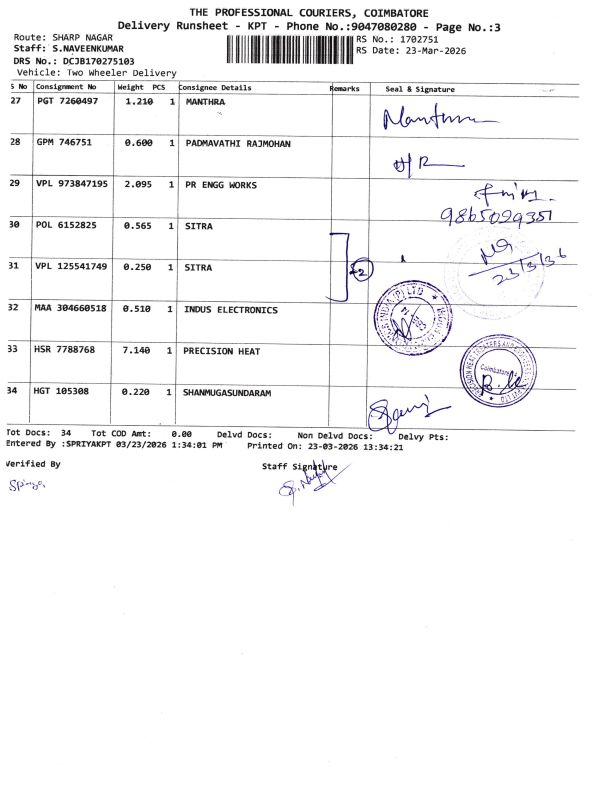 THE PROFESSIONAL COURIERS, COIMBATORE
Delivery Runsheet - KPT - Phone No.:9047080280 - Page No.:3
Route: SHARP NAGAR RS No.: 1702751
Staff: S.NAVEENKUMAR RS Date: 23-Mar-2026
DRS No.: DCJB170275103
Vehicle: Two Wheeler Delivery
S No Consignment No Weight PCS Consignee Details Remarks Seal & Signature
27 PGT 7260497 1.210 1 MANTHRA
28 GPM 746751 0.600 1 PADMAVATHI RAJMOHAN
29 VPL 973847195 2.095 1 PR ENGG WORKS
9865029351
30 POL 6152825 0.565 1 SITRA
23/3/26
31 VPL 125541749 0.250 1 SITRA
32 MAA 304660518 0.510 1 INDUS ELECTRONICS
33 HSR 7788768 7.140 1 PRECISION HEAT
Coimbatore
34 HGT 105308 0.220 1 SHANMUGASUNDARAM
Tot Docs: 34 Tot COD Amt: 0.00 Delvd Docs: Non Delvd Docs: Delvy Pts:
Entered By :SPRIYAKPT 03/23/2026 1:34:01 PM Printed On: 23-03-2026 13:34:21
Verified By Staff Signature